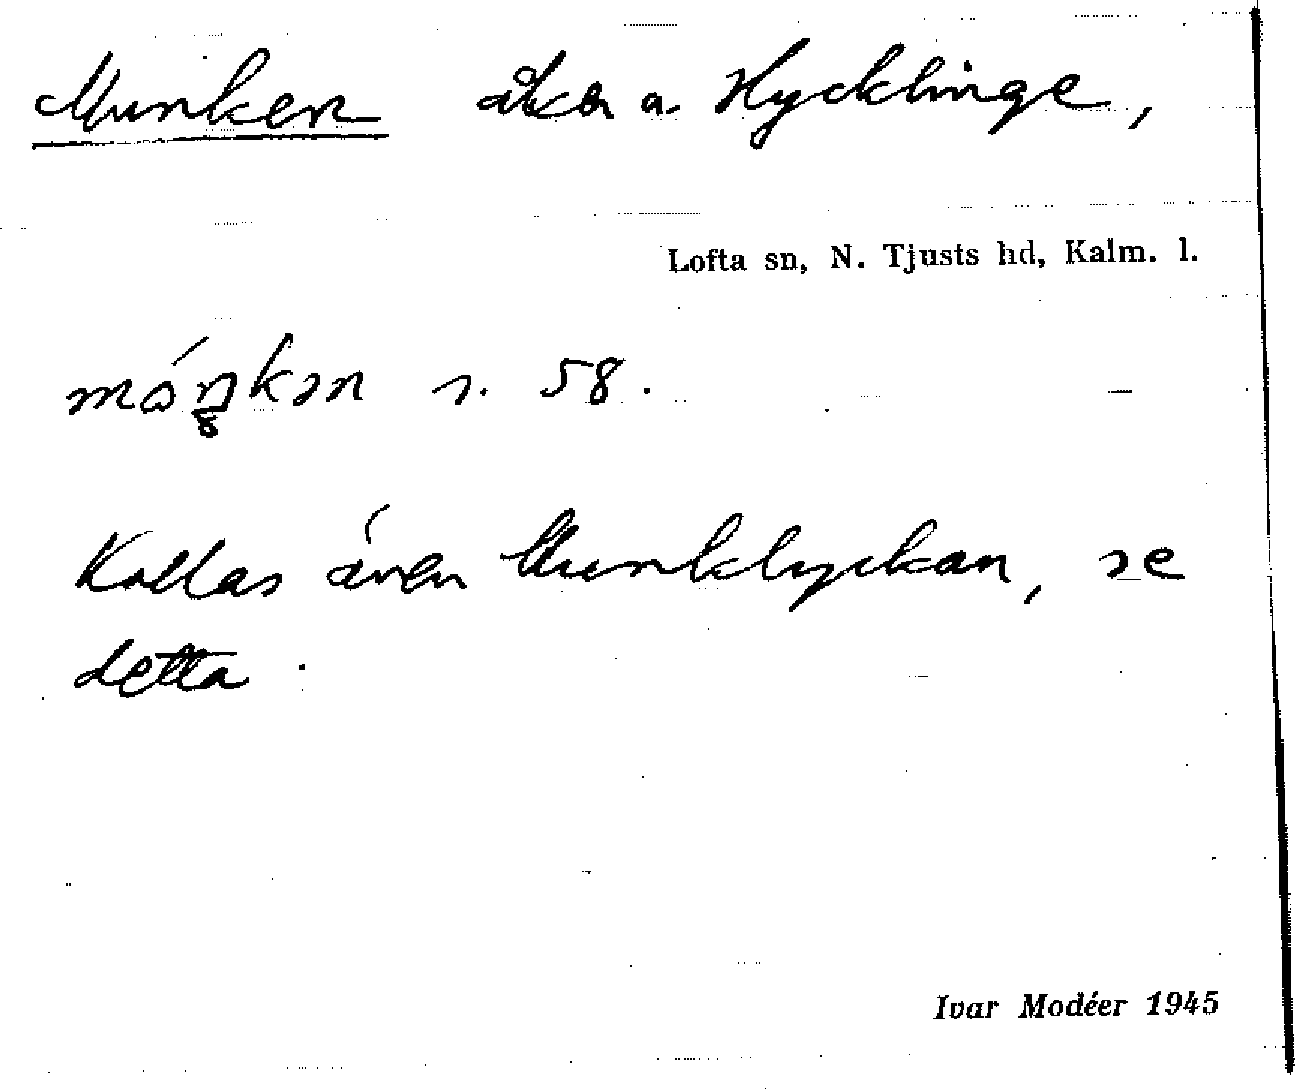 Munken åker a. Hycklinge,
Lofta sn, N. Tjusts hd, Kalm. l.
móŋkən s. 58.
Kallas även Munklyckan, se
detta.
Ivar Modéer 1945